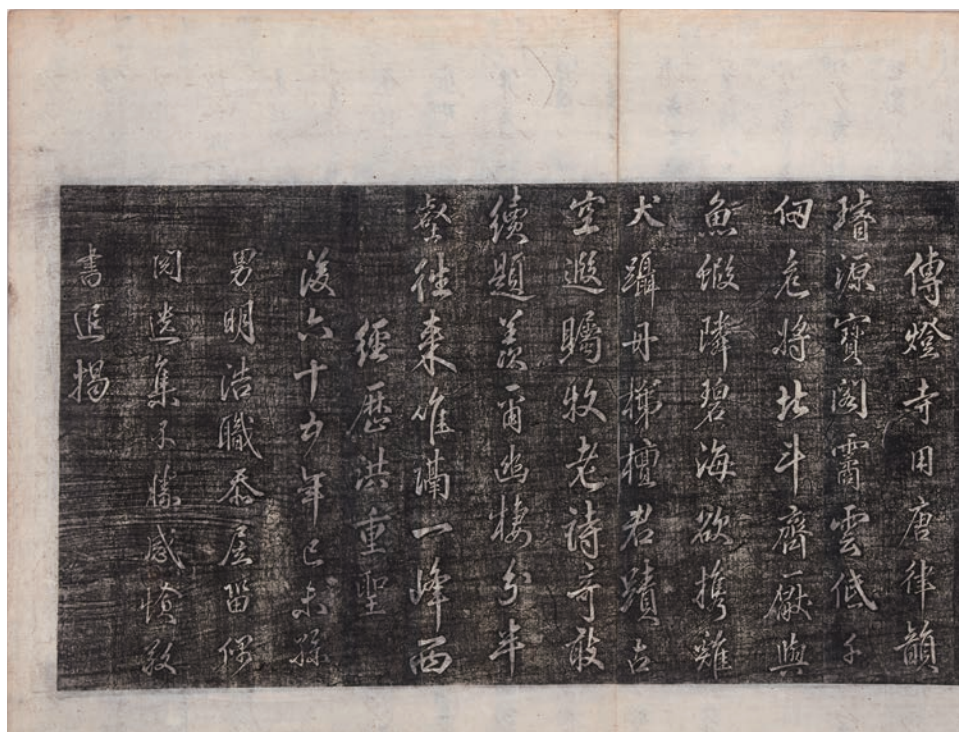 傳燈寺用唐律韻
璿源寶閣霱雲低千
仞危將北斗齊厭與
魚蝦隣碧海欲携雞
犬躡丹梯檀君蹟古
空遐矚牧老詩奇敢
續題羨爾幽棲分半
壑往來唯隔一峰西
經歷洪重聖
後六十五年己未孫
男明浩職忝居留偶
閱遺集不勝感愴敬
書追揭